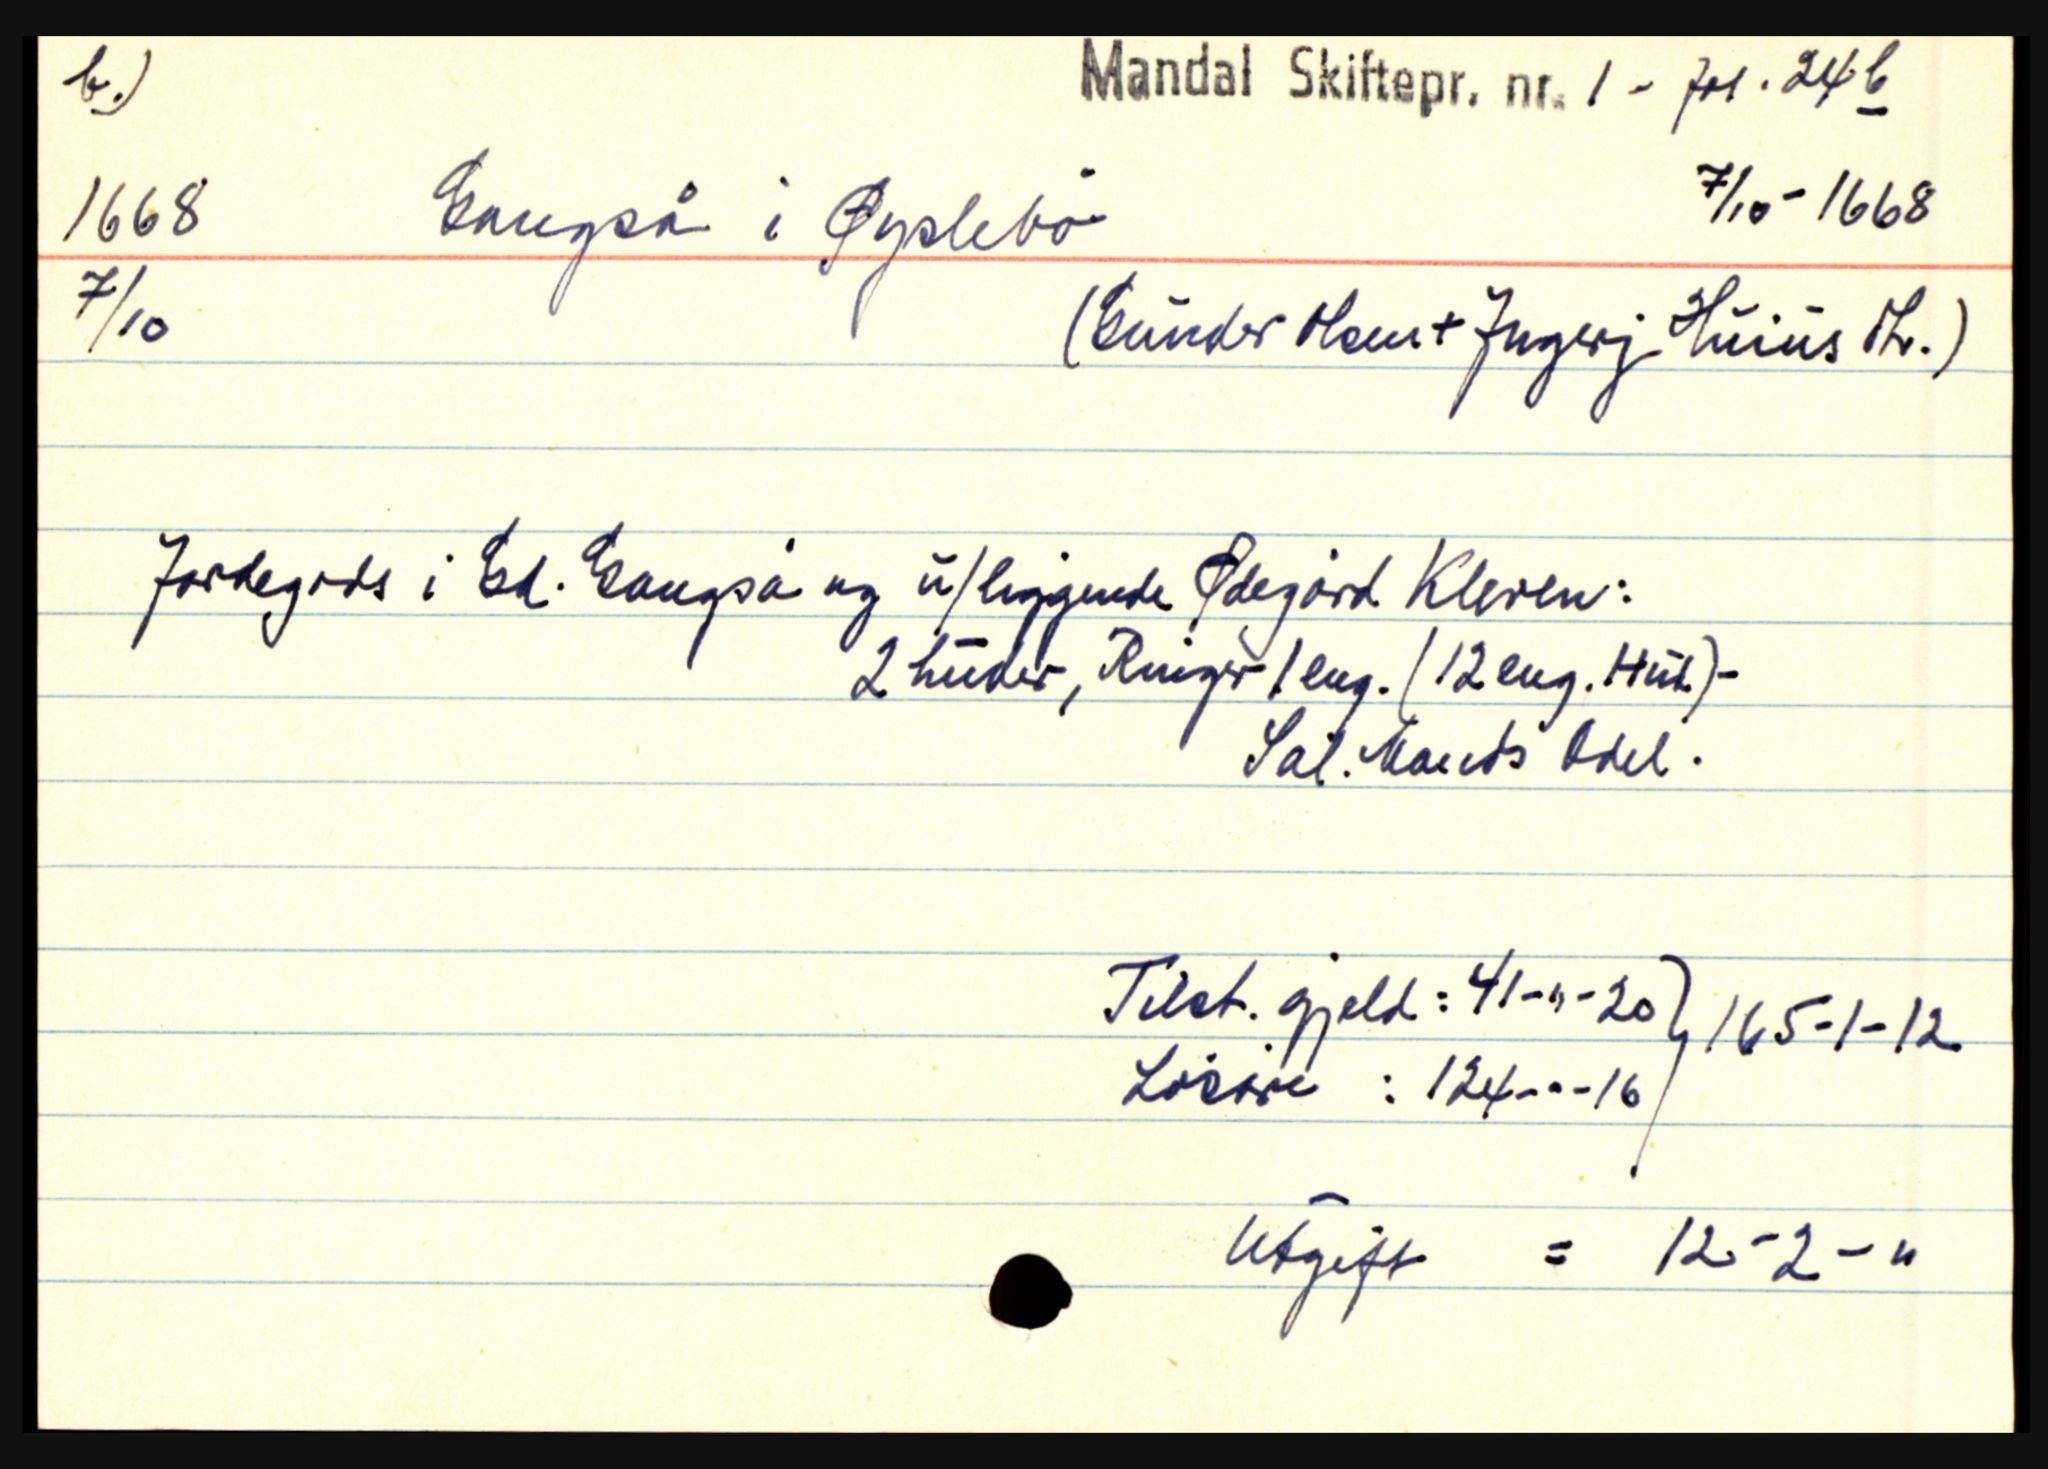 b.) Mandal Skiftepr. nr. 1 - fol. 24b
1668 Gangså i Øyslebö 7/10 - 1668
7/10 (Gunder Olsen + Ingerj Huius Dtr.)
Jordegods i Gd. Gangså og u/liggende Ødegård Kleven:
2 huder, Ringer 1 eng. (12 eng. Hud.) -
Sal. Mands Odel.
Tilst. gjeld : 41-"-20 } 165-1-12
Lösöre : 124-"-16
Utgift = 12-2-"